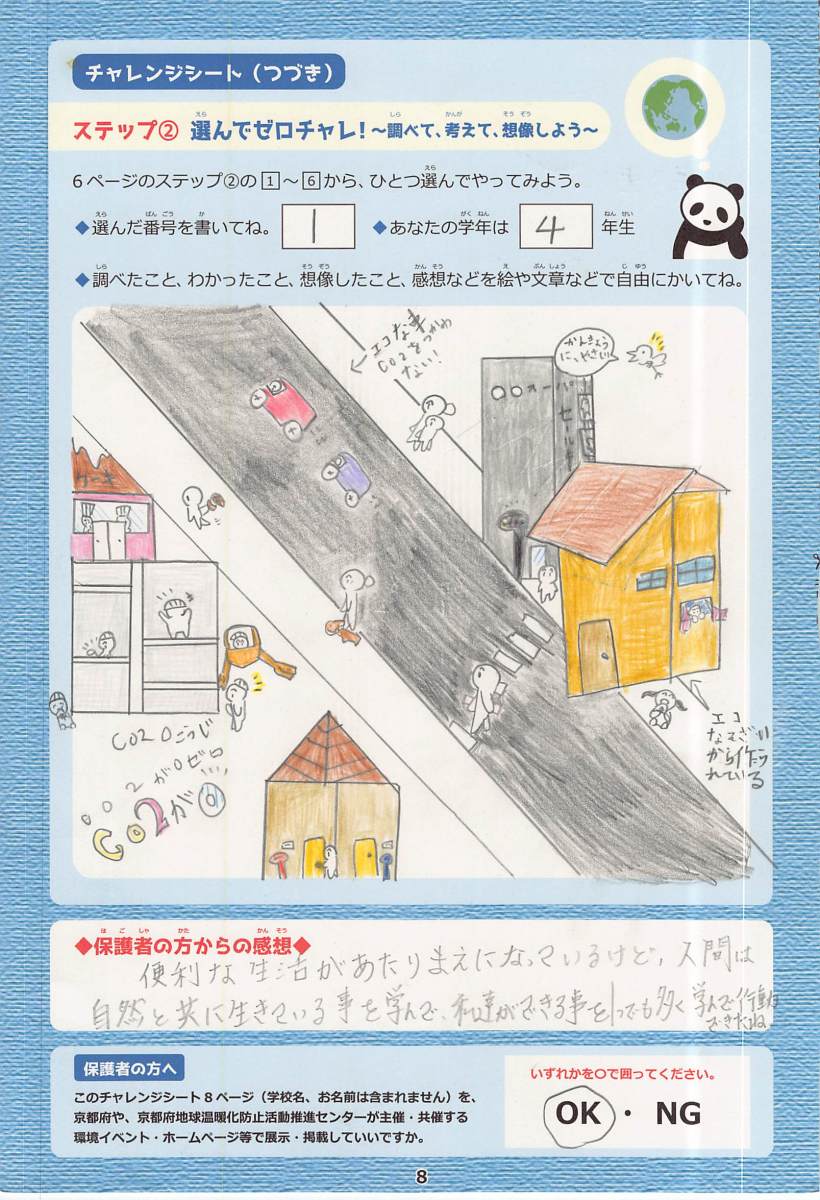 チャレンジシート（つづき）
ステップ② 選んでゼロチャレ！～調べて、考えて、想像しよう～
6ページのステップ②の1～6から、ひとつ選んでやってみよう。
◆選んだ番号を書いてね。 1 ◆あなたの学年は 4 年生
◆調べたこと、わかったこと、想像したこと、感想などを絵や文章などで自由にかいてね。
エコな車
CO2をつかわ
ない！
かんきょう
に、やさしい
○○スーパー
セール
ケーキ
CO2 0こうじ
CO2が0ゼロ
CO2が0
エコ
なもくざい
から作ら
れている
◆保護者の方からの感想◆
便利な生活があたりまえになっているけど、人間は
自然と共に生きている事を学んで、私達ができる事を1つでも多く学んで行動
できたいね
保護者の方へ
このチャレンジシート8ページ（学校名、お名前は含まれません）を、
京都府や、京都府地球温暖化防止活動推進センターが主催・共催する
環境イベント・ホームページ等で展示・掲載していいですか。
いずれかを○で囲ってください。
OK ・ NG
8